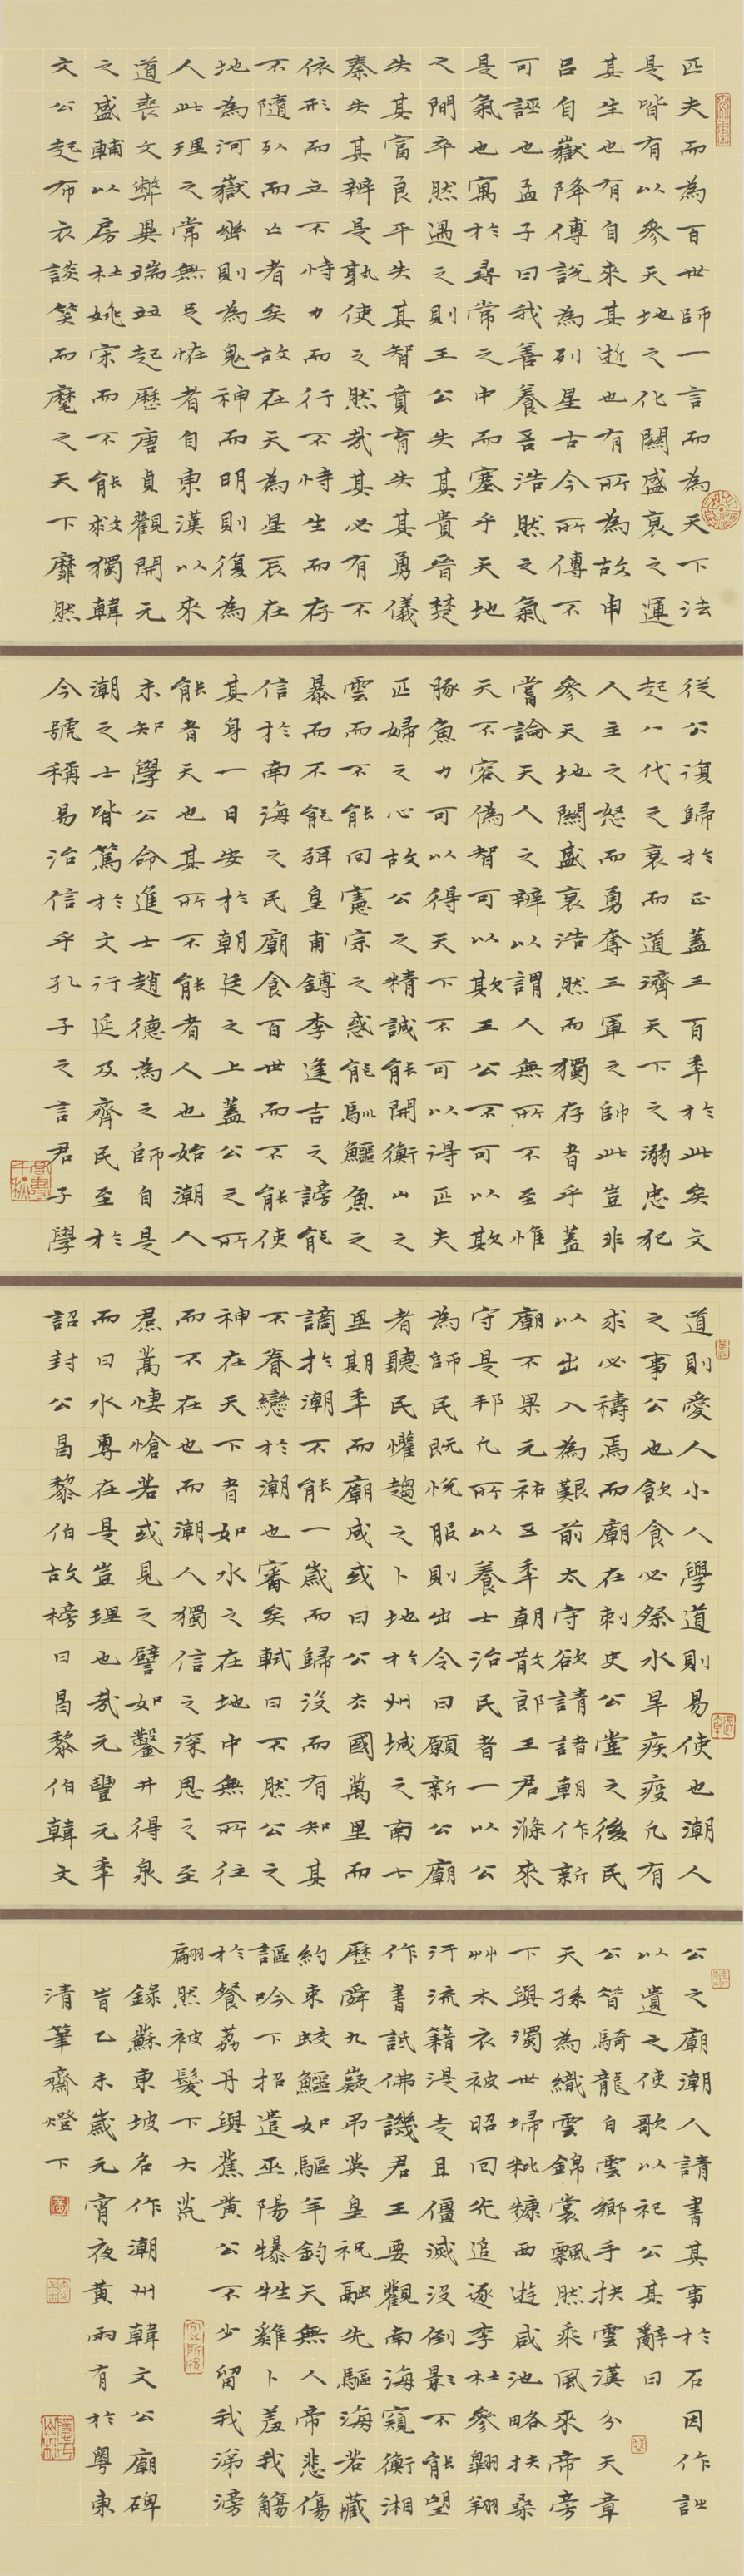 匹夫而為百世師一言而為天下法
是皆有以參天地之化關盛衰之運
其生也有自來其逝也有所為故申
呂自嶽降傅說為列星古今所傳不
可誣也孟子曰我善養吾浩然之氣
是氣也寓於尋常之中而塞乎天地
之間卒然遇之則王公失其貴晉楚
失其富良平失其智賁育失其勇儀
秦失其辨是孰使之然哉其必有不
依形而立不恃力而行不恃生而存
不隨死而亡者矣故在天為星辰在
地為河嶽幽則為鬼神而明則復為
人此理之常無足怪者自東漢以來
道喪文弊異端並起歷唐貞觀開元
之盛輔以房杜姚宋而不能救獨韓
文公起布衣談笑而麾之天下靡然
從公復歸於正蓋三百年於此矣文
起八代之衰而道濟天下之溺忠犯
人主之怒而勇奪三軍之帥此豈非
參天地關盛衰浩然而獨存者乎蓋
嘗論天人之辨以謂人無所不至惟
天不容偽智可以欺王公不可以欺
豚魚力可以得天下不可以得匹夫
匹婦之心故公之精誠能開衡山之
雲而不能回憲宗之惑能馴鱷魚之
暴而不能弭皇甫鎛李逢吉之謗能
信於南海之民廟食百世而不能使
其身一日安於朝廷之上蓋公之所
能者天也其所不能者人也始潮人
未知學公命進士趙德為之師自是
潮之士皆篤於文行延及齊民至於
今號稱易治信乎孔子之言君子學
道則愛人小人學道則易使也潮人
之事公也飲食必祭水旱疾疫凡有
求必禱焉而廟在刺史公堂之後民
以出入為艱前太守欲請諸朝作新
廟不果元祐五年朝散郎王君滌來
守是邦凡所以養士治民者一以公
為師民既悅服則出令曰願新公廟
者聽民懽趨之卜地於州城之南七
里期年而廟成或曰公去國萬里而
謫於潮不能一歲而歸沒而有知其
不眷戀於潮也審矣軾曰不然公之
神在天下者如水之在地中無所往
而不在也而潮人獨信之深思之至
焄蒿悽愴若或見之譬如鑿井得泉
而曰水專在是豈理也哉元豐元年
詔封公昌黎伯故榜曰昌黎伯韓文
公之廟潮人請書其事於石因作詩
以遺之使歌以祀公其辭曰
公昔騎龍白雲鄉手抉雲漢分天章
天孫為織雲錦裳飄然乘風來帝旁
下與濁世埽秕糠西遊咸池略扶桑
艸木衣被昭回光追逐李杜參翱翔
汗流籍湜走且僵滅沒倒影不能望
作書詆佛譏君王要觀南海窺衡湘
歷舜九嶷弔英皇祝融先驅海若藏
約束蛟鱷如驅羊鈞天無人帝悲傷
謳吟下招遣巫陽犦牲雞卜羞我觴
於餐荔丹與蕉黃公不少留我涕滂
翩然被髮下大荒
錄蘇東坡名作潮州韓文公廟碑
旹乙未歲元宵夜黃雨有於粵東
清筆齋燈下